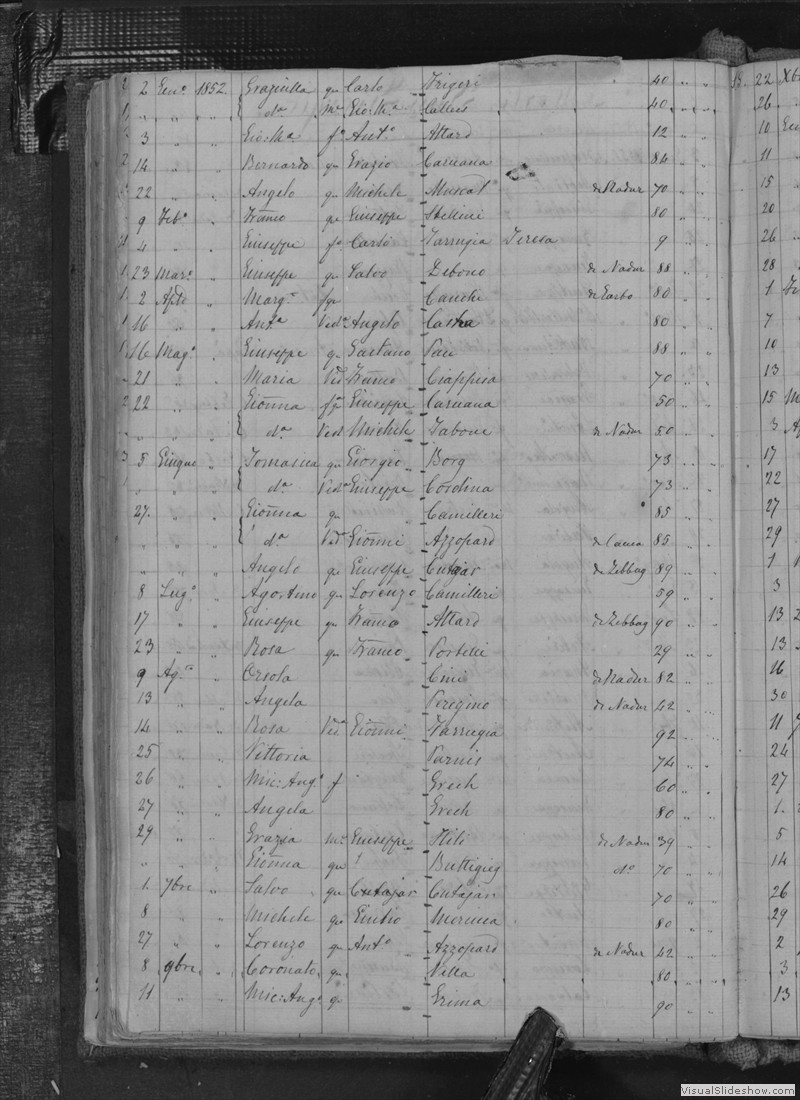 2 Gen.o 1852. Graziella qu Carlo Frigeri 40 „ „
„ „ „ da Me Gio.Ma Calleo 40 „ „
3 „ „ Gio.Ma fo Ant.o Attard 12 „ „
14 „ „ Bernardo qu Grazio Caruana 84 „ „
22 „ „ Angelo qu Michele Muscat de Nadur 70 „ „
9 Feb.o „ Franco qu Giuseppe Stellini 80 „ „
4 „ „ Giuseppe fo Carlo Farrugia Teresa 9 „ „
23 Mar.o „ Giuseppe qu Salvo Debono de Nadur 88 „ „
2 Aple „ Marg.a Cauchi de Garbo 80 „ „
16 „ „ Ant.a Ved.a Angelo 80 „ „
16 Mag.o „ Giuseppe q Gaetano Pace 88 „ „
21 „ „ Maria Ved Franco Ciappisa 70 „ „
22 „ „ Gionna fa Giuseppe Caruana 50 „ „
„ „ „ da Ved Michele Tabone de Nadur 50 „ „
5 Giugno „ Tomasina qu Giorgio Borg 73 „ „
„ „ „ da Ved.a Giuseppe Cordina 73 „ „
27. „ „ Gionna qu Camilleri 85 „ „
„ „ „ da Ved.a Gionni Azzopard de Caccia 85 „ „
„ „ „ Angelo qu Giuseppe Cutajar de Zebbug 89 „ „
8 Lug.o „ Agostino qu Lorenzo Camilleri 59 „ „
17 „ „ Giuseppe qu Franco Attard de Zebbug 90 „ „
23 „ „ Rosa qu Franco Portelli 29 „ „
9 Ag.to „ Orsola Cini de Nadur 82 „ „
13 „ „ Angela Peregino de Nadur 42 „ „
14 „ „ Rosa Ved.a Gionni Farrugia 92 „ „
25 „ „ Vittoria Parnis 74 „ „
26 „ „ Mic: Ang.o f Grech 60 „ „
27 „ „ Angela Grech 80 „ „
29 „ „ Grazia Me Giuseppe Hili de Nadur 39 „ „
„ „ „ Gionna qu Buttigieg do 70 „ „
1. 7bre „ Salvo qu Cutajar Cutajar 70 „ „
8 „ „ Michele qu Emilio Mercieca 80 „ „
27 „ „ Lorenzo qu Ant.o Azzopard de Nadur 42 „ „
8 9bre „ Coronato qu Vella 80 „ „
11 „ „ Mic: Ang.o q Grima 90 „ „
22 Xbr
26
10
11
15
20
26
28
1
7
10
13
15
3
17
22
27
29
1
3
13
13
16
30
11
24
27
1.
5
14
26
29
2
3
13
VisualSlideshow.com